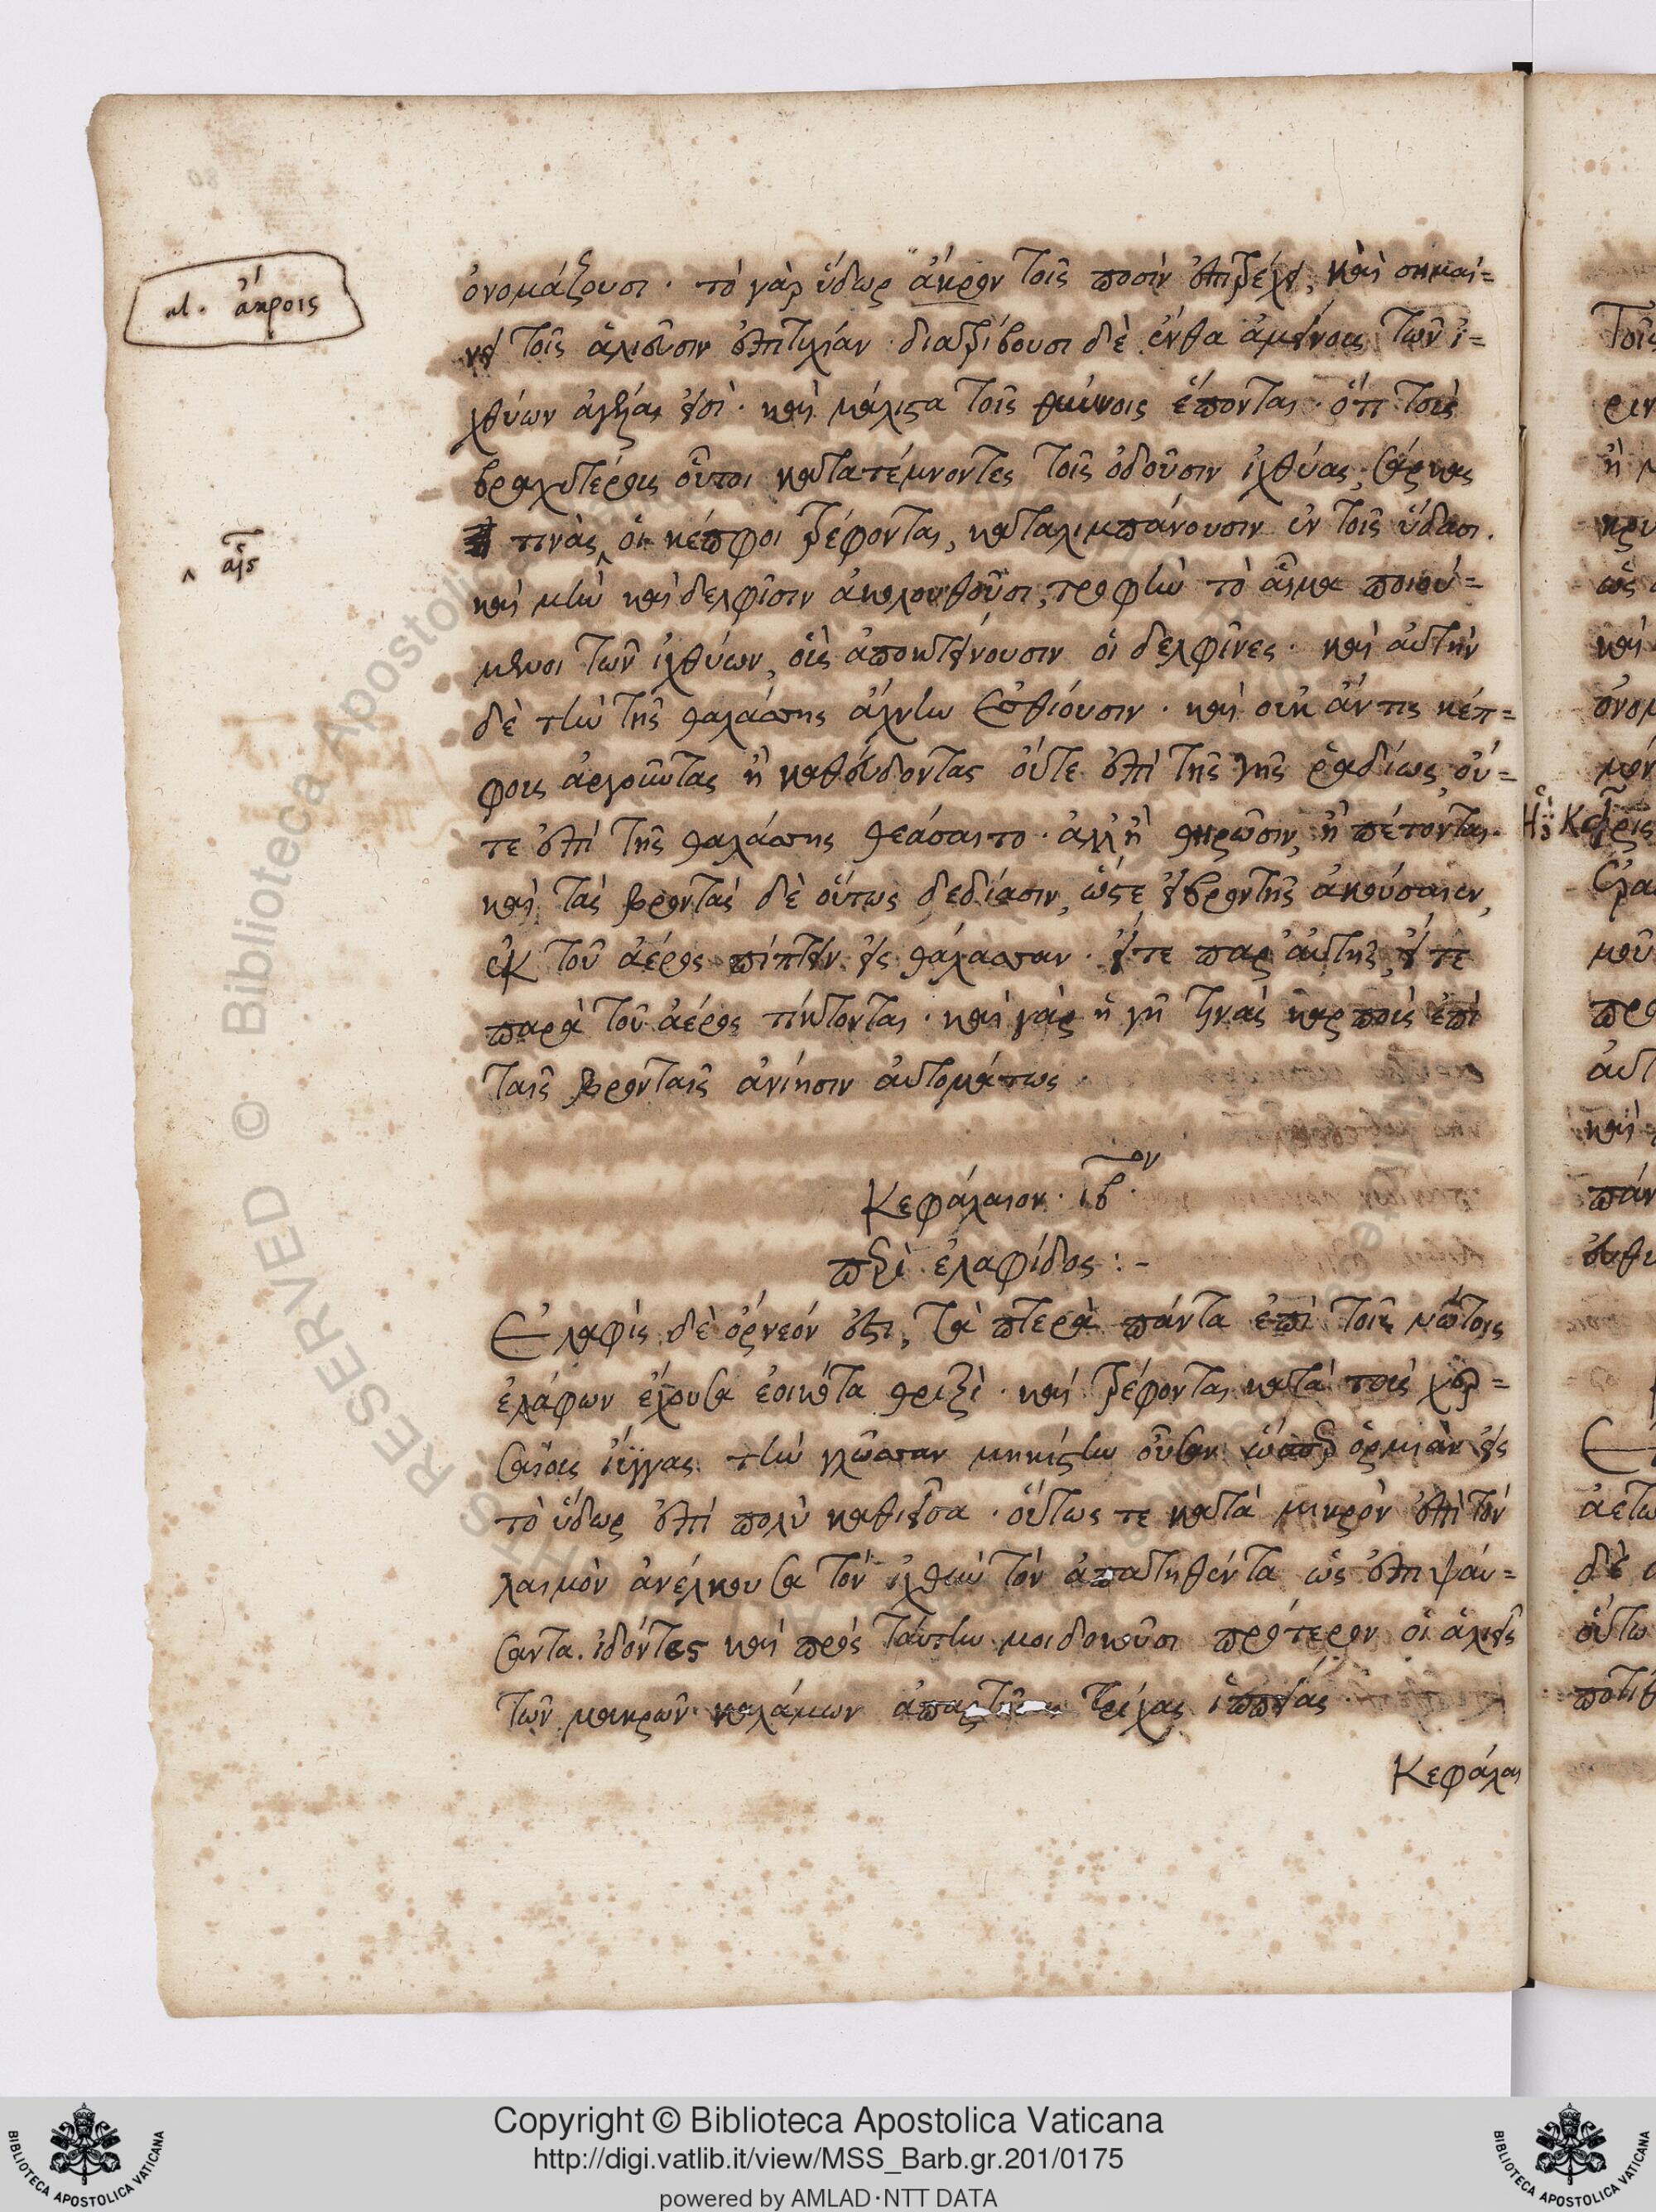 al. ἄκροις
ὀνομάζουσι. τὸ γὰρ ὕδωρ ἄκρον τοῖς ποσὶν ἐπιτρέχει, καὶ σημαί=
νει τοῖς ἁλιεῦσιν ἐπιτυχίαν. διατρίβουσι δὲ ἔνθα ἀμείνους τῶν ἰ=
χθύων ἀγέλαι εἰσί. καὶ μάλιστα τοῖς θύννοις ἕπονται. ὅτι τοὺς
βραχυτέρους οὗτοι κατατέμνοντες τοῖς ὀδοῦσιν ἰχθύας, σάρκας
τινὰς ‸ οἱ κέπφοι τρέφονται, καταλιμπάνουσιν ἐν τοῖς ὕδασι.
‸ αἷς
καὶ μὴν καὶ δελφῖσιν ἀκολουθοῦσι, τροφὴν τὸ αἷμα ποιού=
μενοι τῶν ἰχθύων, οὓς ἀποκτείνουσιν οἱ δελφῖνες. καὶ αὐτὴν
δὲ τὴν τῆς θαλάσσης ἄχνην ἐσθίουσιν. καὶ οὐκ ἄν τις κέπ=
φους ἀργοῦντας ἢ καθεύδοντας οὔτε ἐπὶ τῆς γῆς ῥαδίως, οὔ=
τε ἐπὶ τῆς θαλάσσης θεάσαιτο. ἀλλ' ἢ θηρῶσιν, ἢ πέτονται.
καὶ τὰς βροντὰς δὲ οὕτως δεδίασιν, ὥστε εἰ βροντῆς ἀκούσαιεν,
ἐκ τοῦ ἀέρος πίπτειν εἰς θάλασσαν. εἴτε παρ' αὐτῆς, εἴτε
παρὰ τοῦ ἀέρος τίκτονται. καὶ γὰρ ἡ γῆ τινὰς καρποὺς ἐπὶ
ταῖς βρονταῖς ἀνίησιν αὐτομάτως
Κεφάλαιον. ιβ.ον
περὶ ἐλαφίδος :-
Ἐλαφὶς δὲ ὄρνεόν ἐστι, τὰ πτερὰ πάντα ἐπὶ τοῖς νώτοις
ἐλάφων ἔχουσα ἐοικότα θριξί. καὶ τρέφονται κατὰ τοὺς χερ=
σαίους ἴϋγγας. τὴν γλῶσσαν μηκίστην οὖσαν ὥσπερ ὁρμιὰν εἰς
τὸ ὕδωρ ἐπὶ πολὺ καθιεῖσα. οὕτως τε κατὰ μικρὸν ἐπὶ τὸν
λαιμὸν ἀνέλκουσα τὸν ἰχθὺν τὸν ἀπατηθέντα ὡς ἐπιψαύ=
σαντα. ἰδόντες καὶ πρὸς ταύτην μοι δοκοῦσι πρότερον οἱ ἁλιεῖς
τῶν μακρῶν καλάμων τρίχας ἱππείας
Κεφάλαι
Copyright © Biblioteca Apostolica Vaticana
http://digi.vatlib.it/view/MSS_Barb.gr.201/0175
powered by AMLAD·NTT DATA